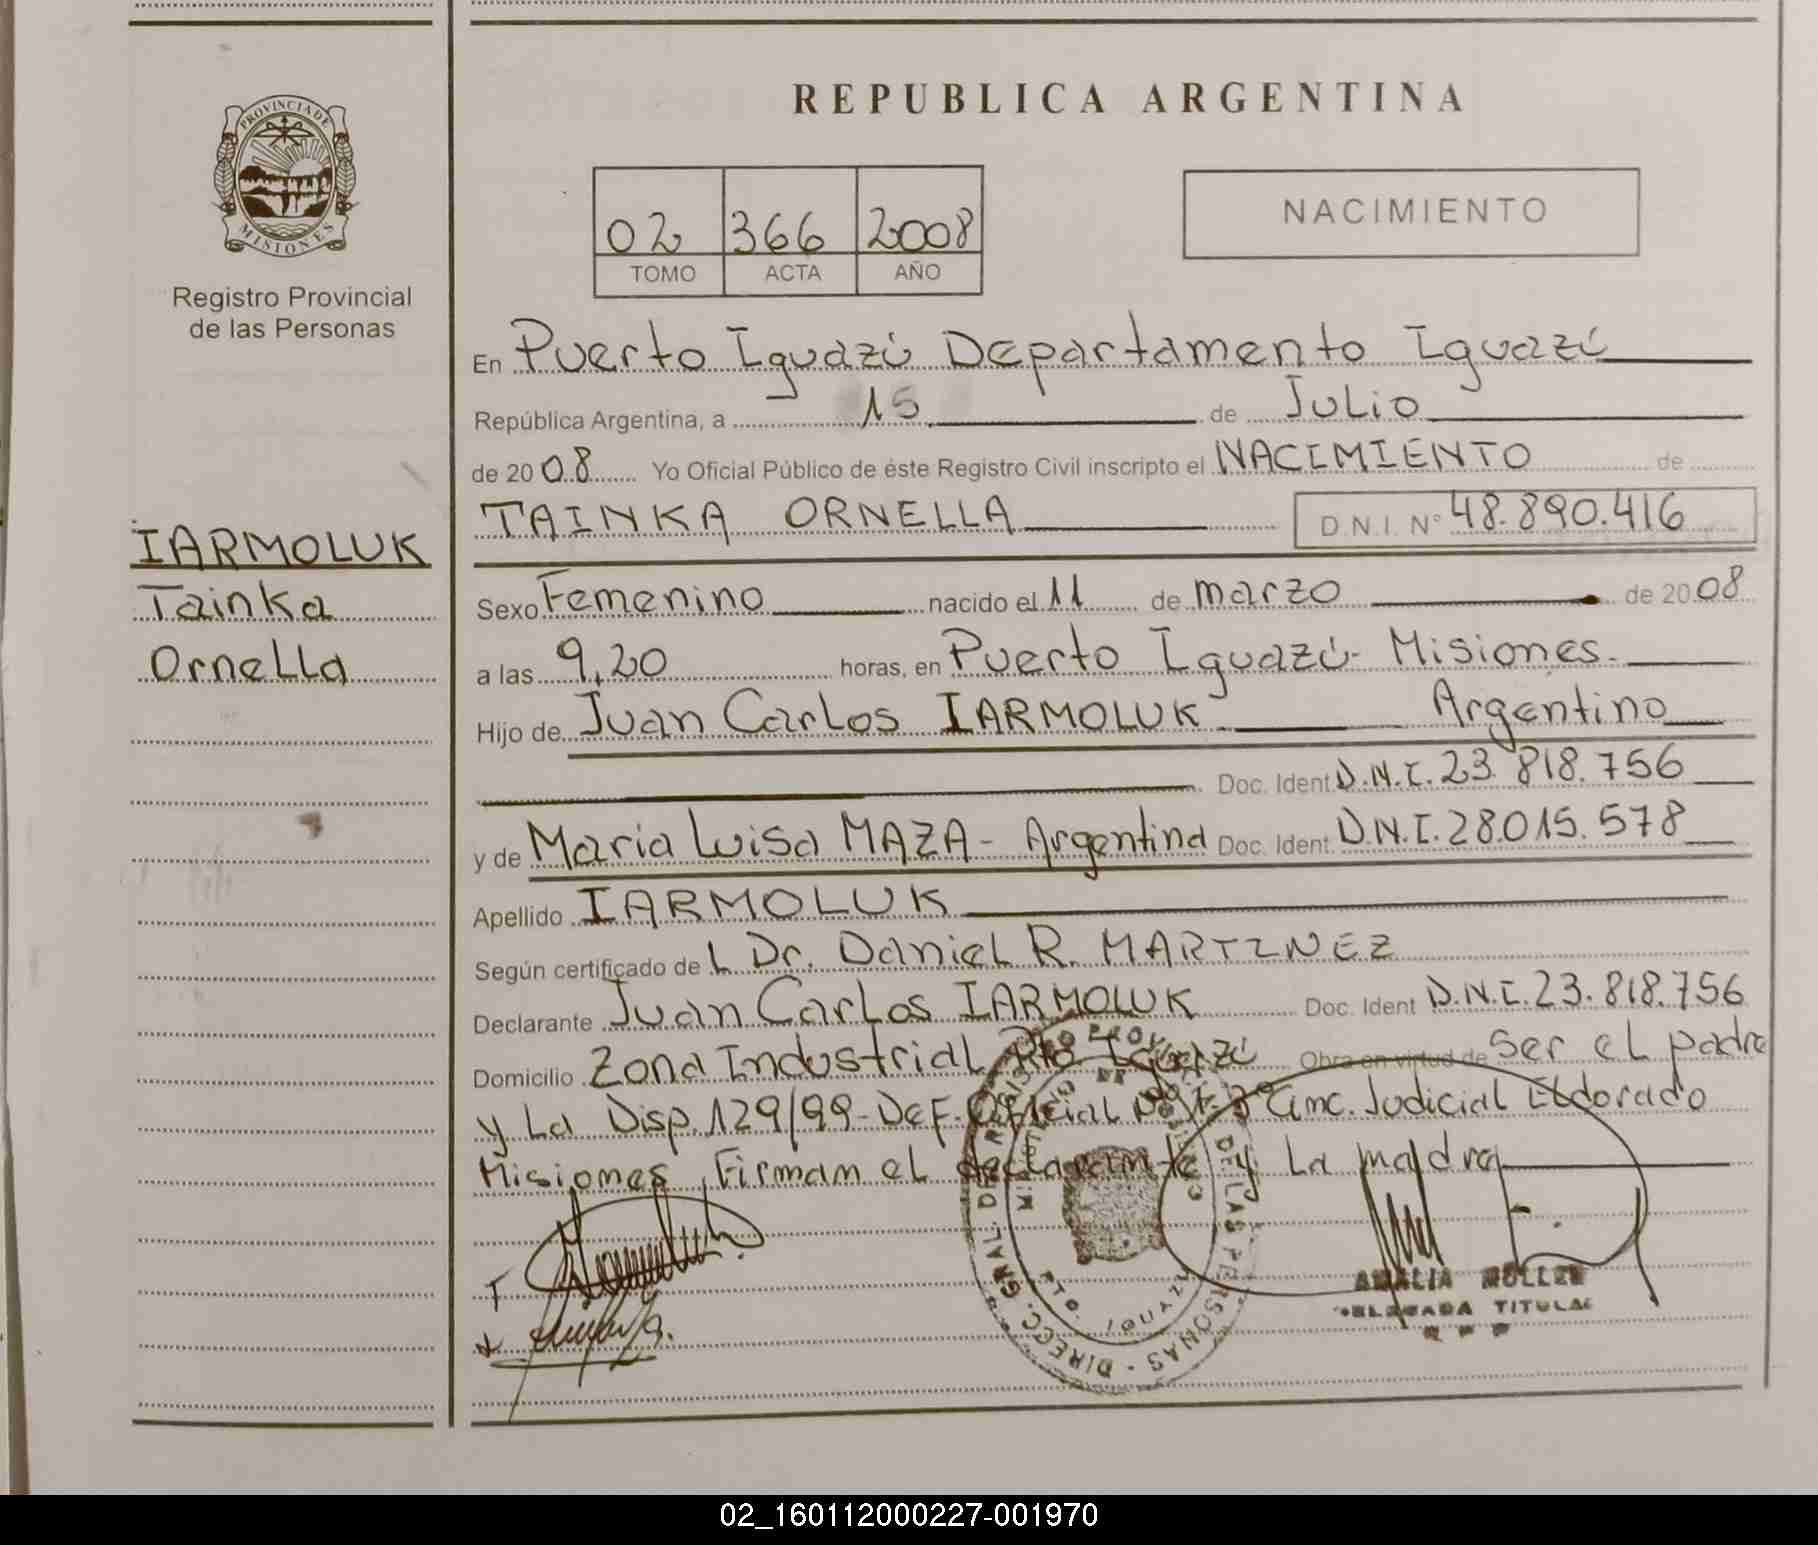 PROVINCIA DE
MISIONES
Registro Provincial
de las Personas
IARMOLUK
Tainka
Ornella
REPUBLICA ARGENTINA
02 366 2008
TOMO ACTA AÑO
NACIMIENTO
En Puerto Iguazú Departamento Iguazú
República Argentina, a 15 de Julio
de 20 08 Yo Oficial Público de éste Registro Civil inscripto el NACIMIENTO de
TAINKA ORNELLA D.N.I. Nº 48.890.416
Sexo Femenino nacido el 11 de marzo de 20 08
a las 9,20 horas, en Puerto Iguazú- Misiones.
Hijo de Juan Carlos IARMOLUK Argentino
Doc. Ident. D.N.I. 23.818.756
y de Maria Luisa MAZA- Argentina Doc. Ident. D.N.I. 28.015.578
Apellido IARMOLUK
Según certificado de L Dr. Daniel R. MARTINEZ
Declarante Juan Carlos IARMOLUK Doc. Ident D.N.I. 23.818.756
Domicilio Zona Industrial Pto Iguazú Obra en virtud de Ser el padre
y La Disp. 129/99- Def. Oficial Nº 1- 3º Circ. Judicial Eldorado
Misiones, Firman el declarante y La madre
DIRECC. GRAL. DEL REGISTRO PROVINCIAL DE LAS PERSONAS
PTO. IGUAZU
AMALIA MULLER
DELEGADA TITULAR
02_160112000227-001970